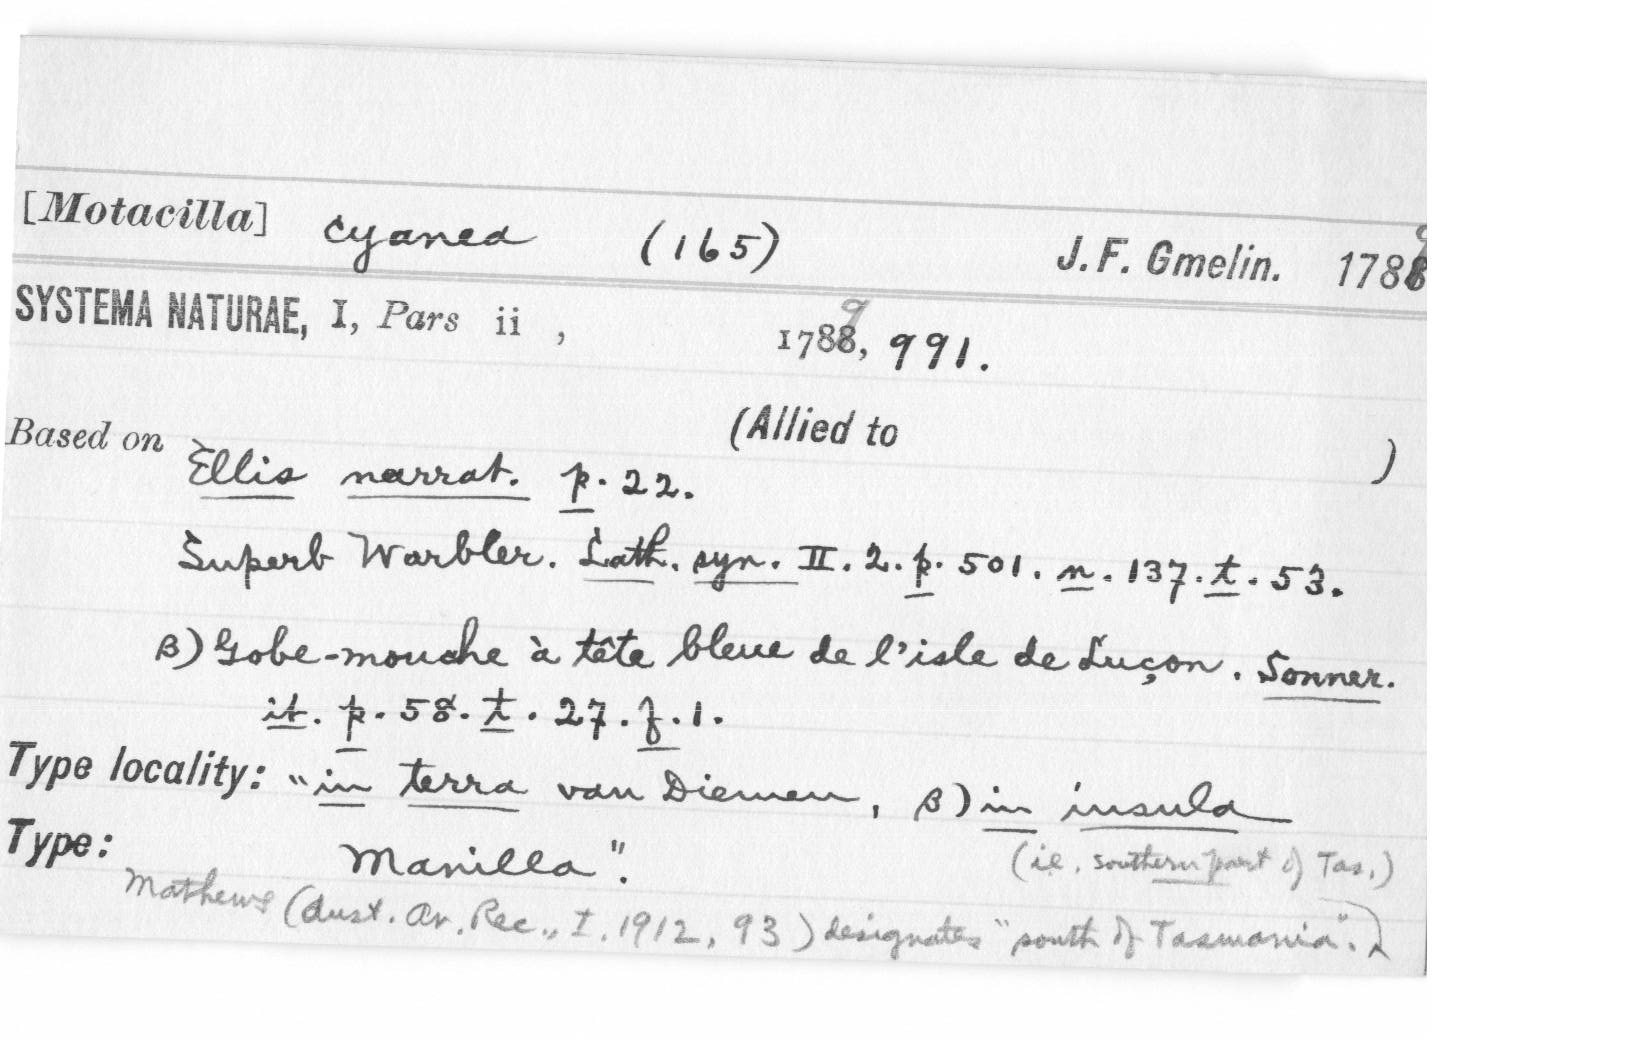 [Motacilla] cyanea (165) J. F. Gmelin. 1789
SYSTEMA NATURAE, I, Pars ii , 1789, 991.
Based on (Allied to )
Ellis narrat. p. 22.
Superb Warbler. Lath. syn. II. 2. p. 501. n. 137. t. 53.
β) Gobe-mouche à tête bleue de l'isle de Luçon. Sonner.
it. p. 58. t. 27. f. 1.
Type locality: "in terra van Diemen, β) in insula
Type: Manilla".
(ie. southern part of Tas.)
Mathews (Aust. Av. Rec., I. 1912, 93) designates "south of Tasmania".